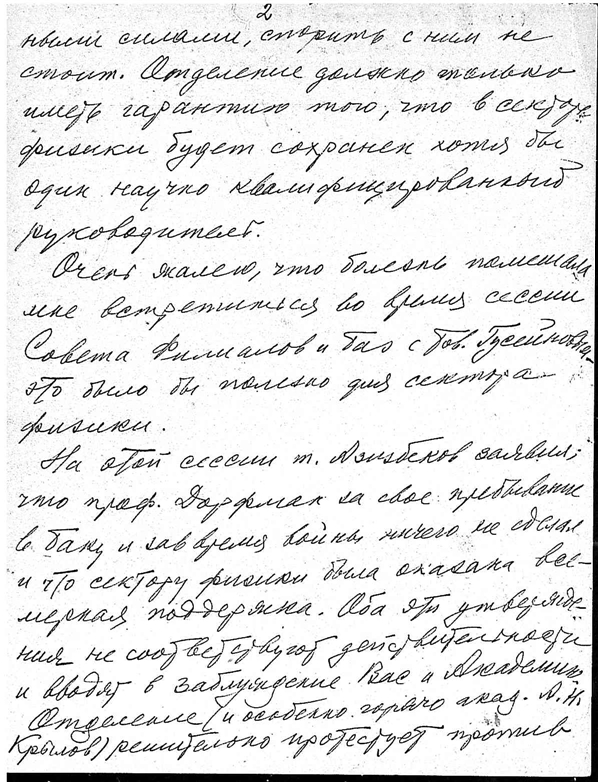 2
ными силами, спорить с ним не
стоит. Отделение должно только
иметь гарантию того, что в секторе
физики будет сохранен хотя бы
один научно квалифицированный
руководитель.
Очень жалею, что болезнь помешала
мне встретиться во время сессии
Совета Филиалов и баз с тов. Гусейновым–
это было бы полезно для сектора
физики.
На этой сессии т. Азизбеков заявил,
что проф. Дорфман за свое пребывание
в Баку и за время войны ничего не сделал
и что сектору физики была оказана все–
мерная поддержка. Оба эти утвержде–
ния не соответствуют действительности
и вводят в заблуждение Вас и Академию.
Отделение (и особенно горячо акад. А.Н.
Крылов) решительно протестует против